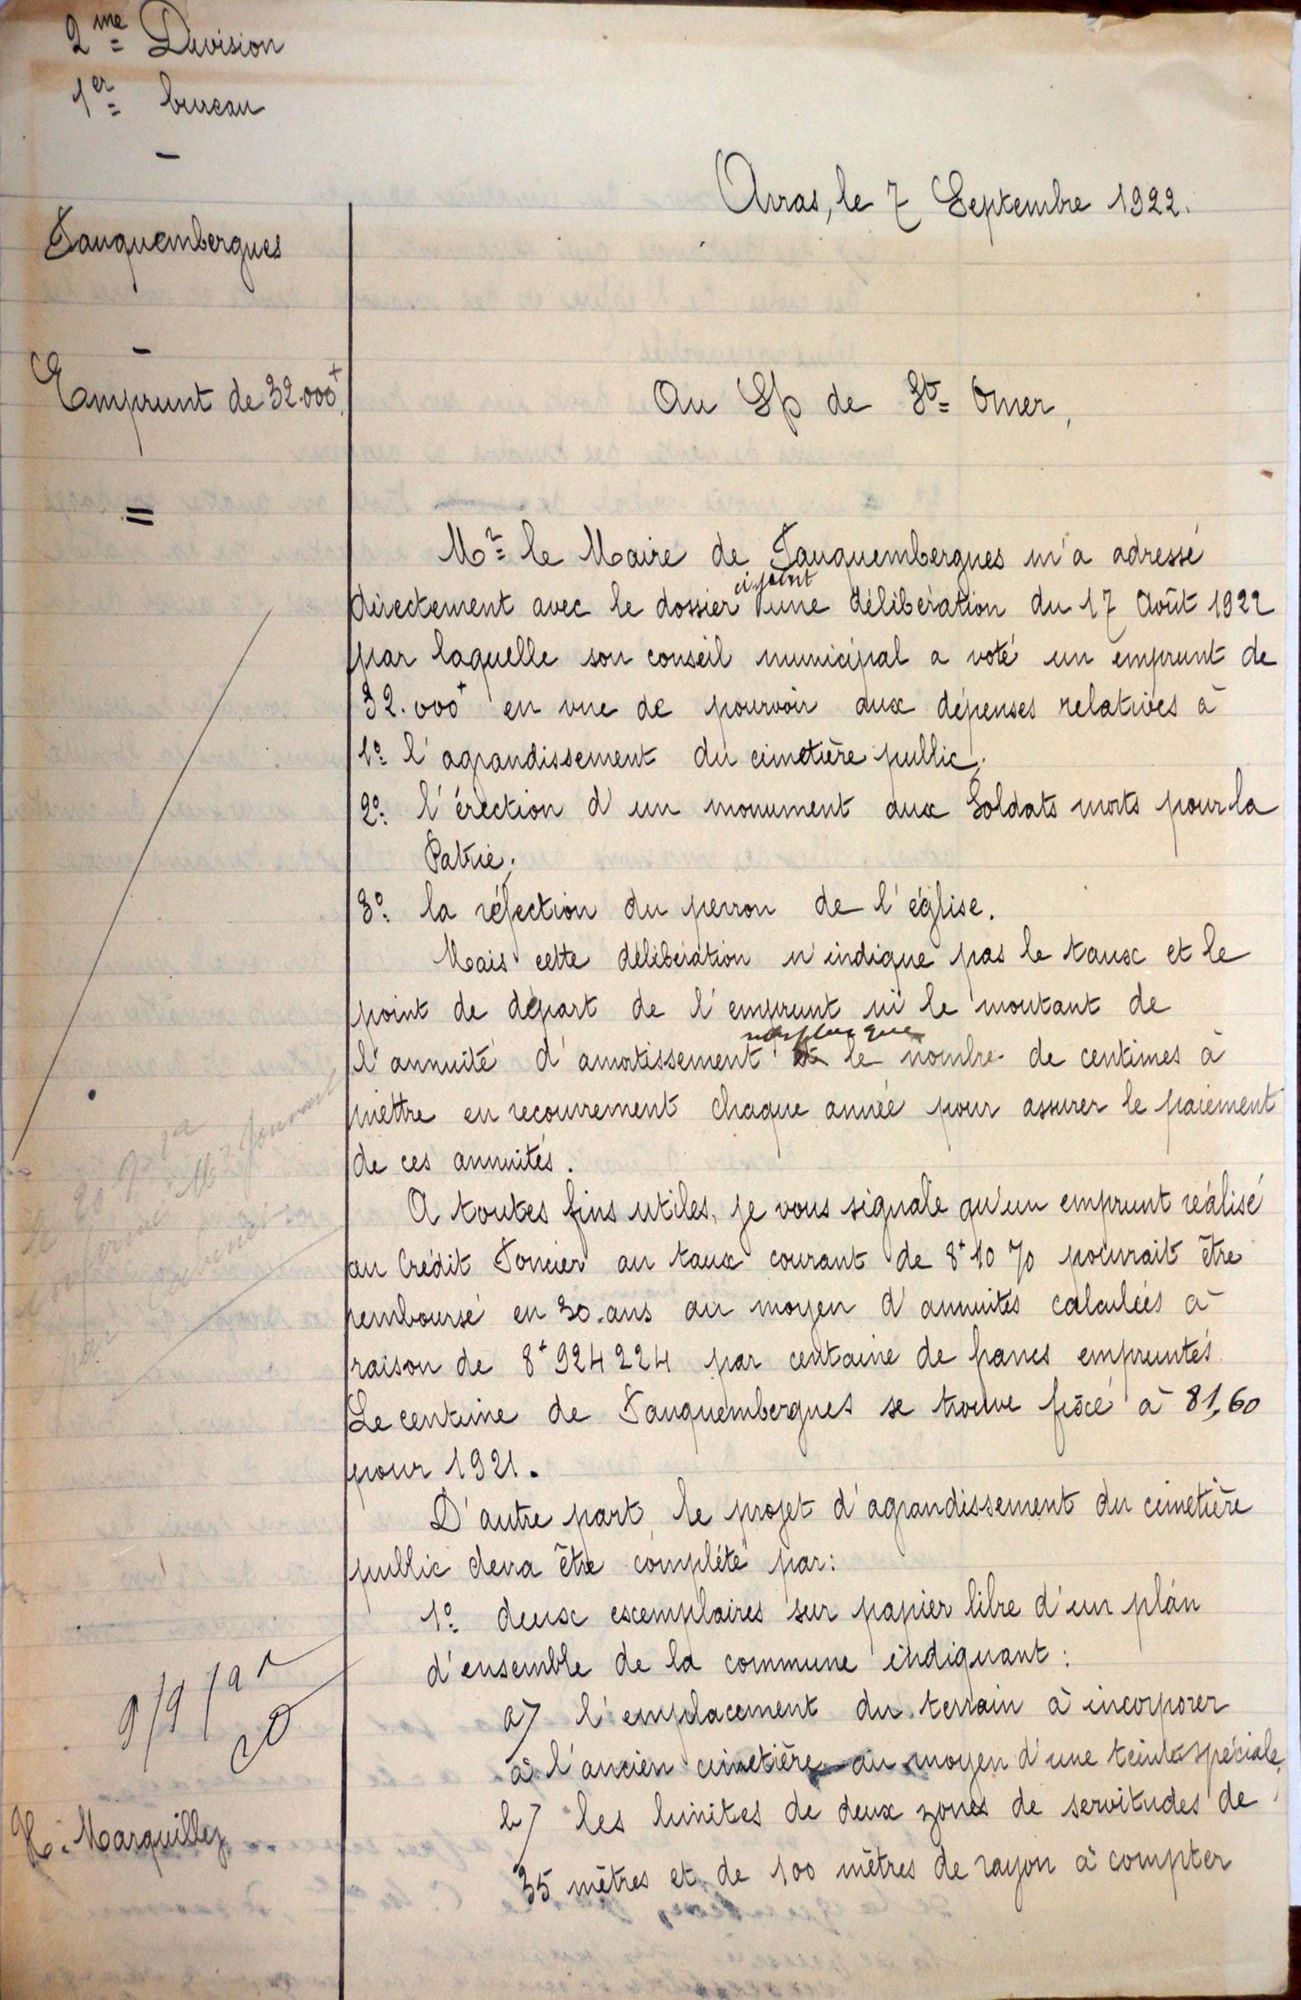 2me Division
1er bureau
Arras, le 7 Septembre 1922.
Fauquembergues
Emprunt de 32.000f
Au Sp de St Omer,
Mr le Maire de Fauquembergues m'a adressé
ci-joint
directement avec le dossier une délibération du 17 Août 1922
par laquelle son conseil municipal a voté un emprunt de
32.000f en vue de pourvoir aux dépenses relatives à
1º l'agrandissement du cimetière public,
2º l'érection d'un monument aux Soldats morts pour la
Patrie;
3º la réfection du perron de l'église.
Mais cette délibération n'indique pas le taux et le
point de départ de l'emprunt ni le montant de
non plus que
l'annuité d'amortissement le nombre de centimes à
mettre en recouvrement chaque année pour assurer le paiement
de ces annuités.
A toutes fins utiles, je vous signale qu'un emprunt réalisé
au Crédit Foncier au taux courant de 8f10 % pourrait être
remboursé en 30 ans au moyen d'annuités calculées à
raison de 8f924224 par centaine de francs empruntés.
Le centime de Fauquembergues se trouve fixé à 81,60
pour 1921.
D'autre part, le projet d'agrandissement du cimetière
public devra être complété par:
1º deux exemplaires sur papier libre d'un plan
d'ensemble de la commune indiquant:
a) l'emplacement du terrain à incorporer
à l'ancien cimetière au moyen d'une teinte spéciale,
b) les limites de deux zones de servitudes de
35 mètres et de 100 mètres de rayon à compter
H. Marquillez